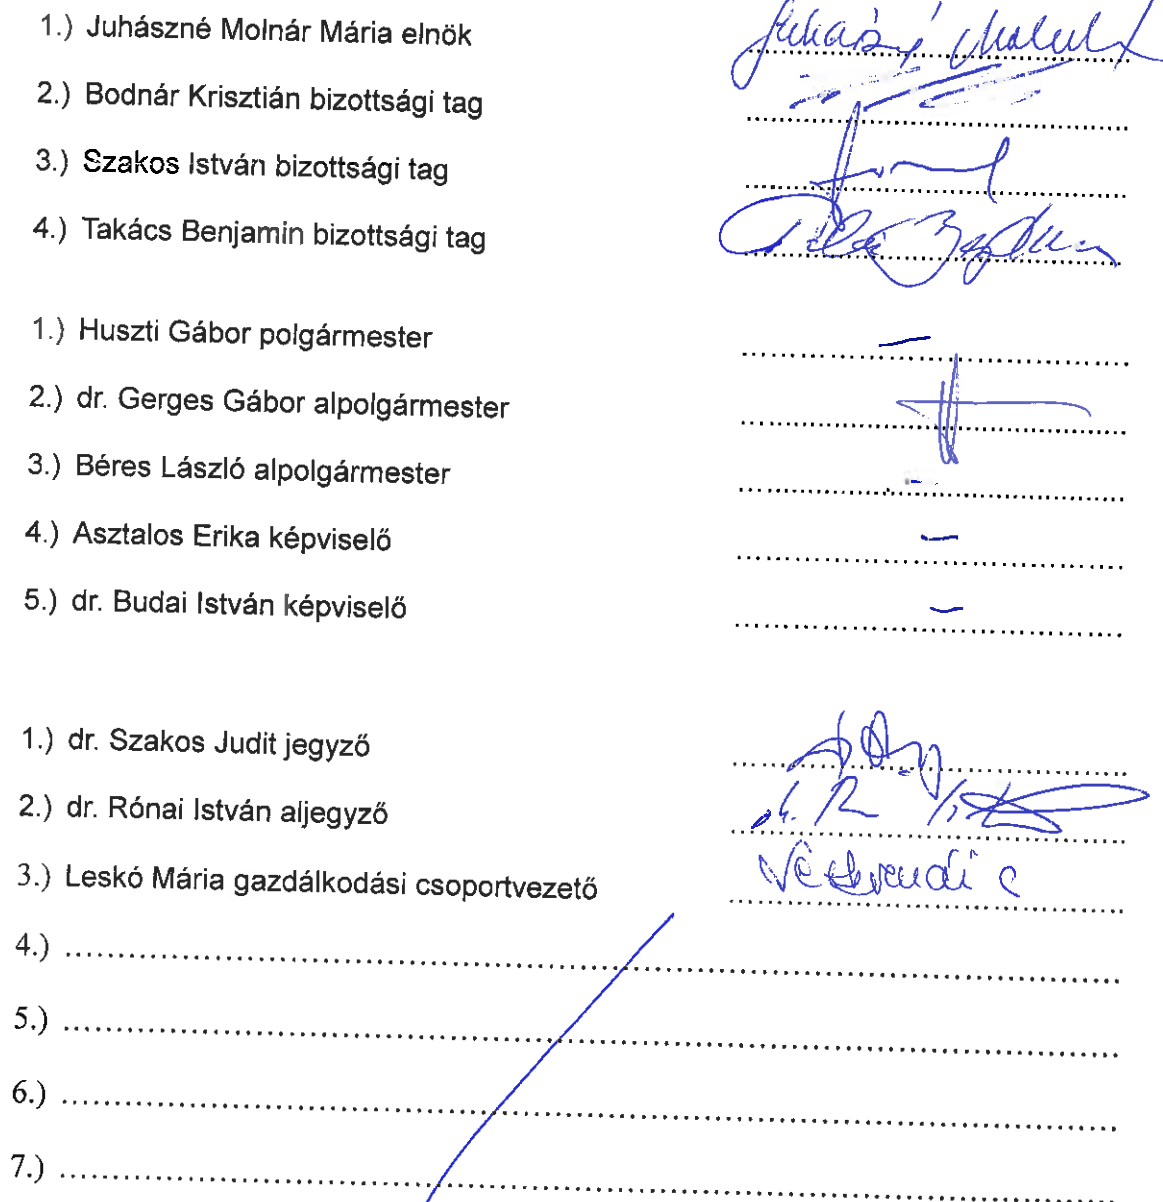 1.) Juhászné Molnár Mária elnök
2.) Bodnár Krisztián bizottsági tag
3.) Szakos István bizottsági tag
4.) Takács Benjamin bizottsági tag
1.) Huszti Gábor polgármester
2.) dr. Gerges Gábor alpolgármester
3.) Béres László alpolgármester
4.) Asztalos Erika képviselő
5.) dr. Budai István képviselő
1.) dr. Szakos Judit jegyző
2.) dr. Rónai István aljegyző
3.) Leskó Mária gazdálkodási csoportvezető
4.)
5.)
6.)
7.)